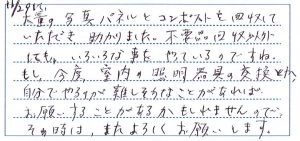 11/29に、
大量の写真パネルとコンポストを回収して
いただき助かりました。不要品回収以外
にも、いろいろな事をやっているのですね。
もし、今度、室内の照明器具の交換とか、
自分でやるのが難しそうなことがあれば
お願いすることがあるかもしれませんので、
その時は、またよろしくお願いします。